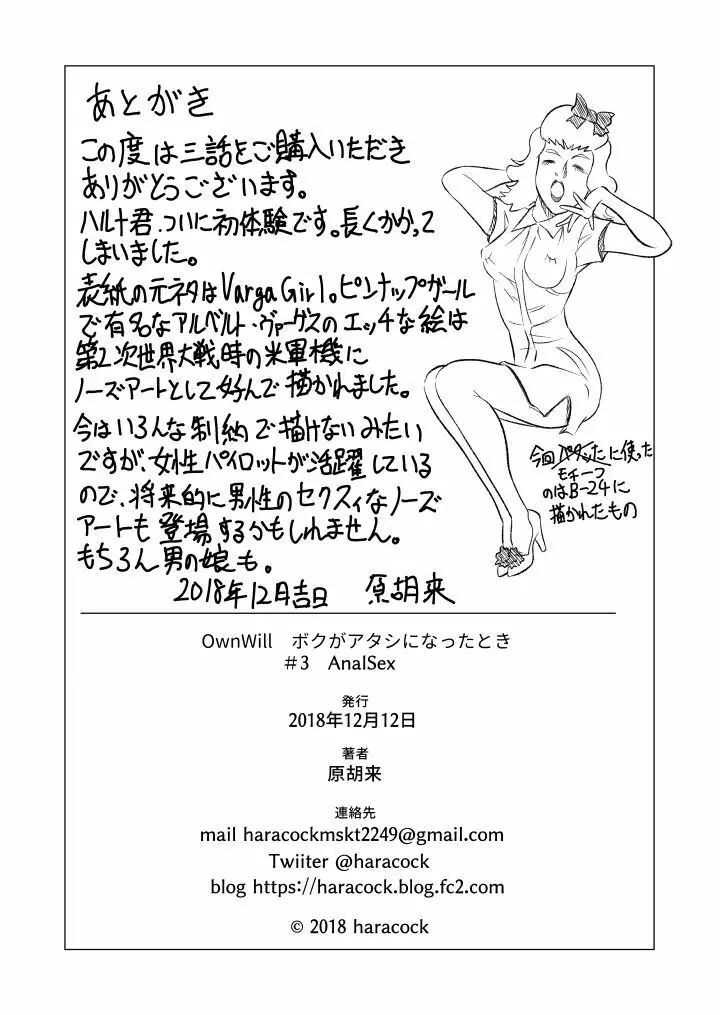 あとがき
この度は三話をご購入いただき
ありがとうございます。
ハルト君、ついに初体験です。長くかかって
しまいました。
表紙の元ネタはVargaGirl。ピンナップガール
で有名なアルベルト・ヴァーゲスのエッチな絵は
第2次世界大戦時の米軍機に
ノーズアートとして好んで描かれました。
今はいろんな制約で描けないみたい
ですが、女性パイロットが活躍している
ので、将来的に男性のセクスィなノーズ
アートも登場するかもしれません。
もちろん男の娘も。
2018年12月吉日 原胡来
今回パクったに使った
モチーフ
のはB-24に
描かれたもの
OwnWill ボクがアタシになったとき
#3 AnalSex
発行
2018年12月12日
著者
原胡来
連絡先
mail haracockmskt2249@gmail.com
Twiiter @haracock
blog https://haracock.blog.fc2.com
© 2018 haracock